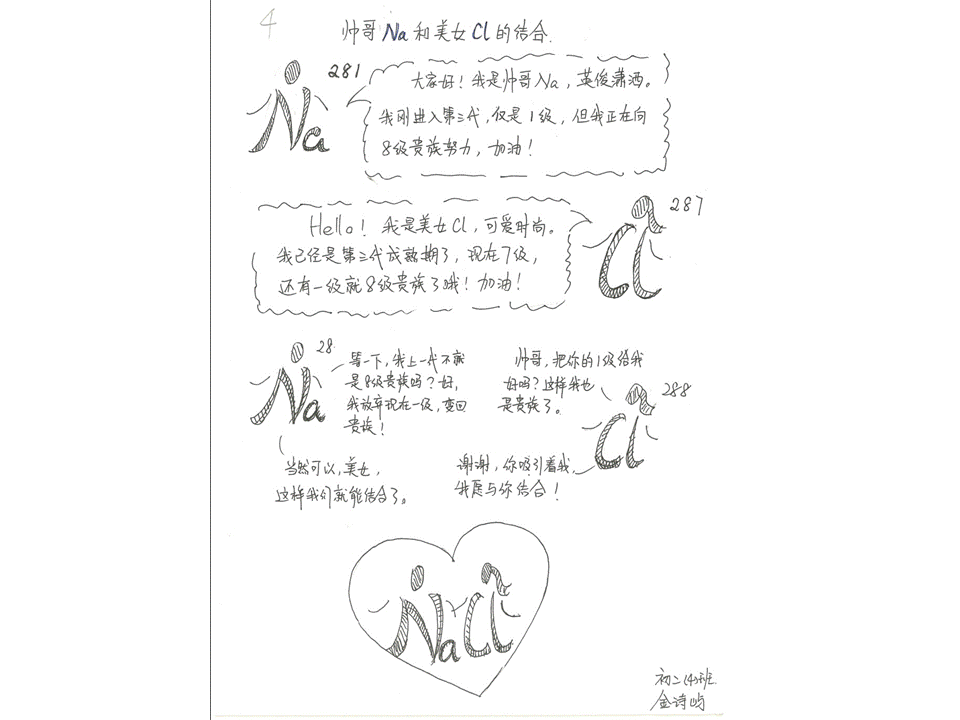 4
帅哥Na和美女Cl的结合.
281
Na
大家好！我是帅哥Na，英俊潇洒。
我刚进入第三代，仅是1级，但我正在向
8级贵族努力，加油！
287
Hello！我是美女Cl，可爱时尚。
我已经是第三代成熟期了，现在7级，
还有一级就8级贵族了哦！加油！
Cl
28
Na
等一下，我上一代不就
是8级贵族吗？好，
我放弃现在一级，变回
贵族！
帅哥，把你的1级给我
好吗？这样我也
是贵族了。
288
Cl
当然可以，美女，
这样我们就能结合了。
谢谢，你吸引着我，
我愿与你结合！
NaCl
初二(4)班
金诗屿